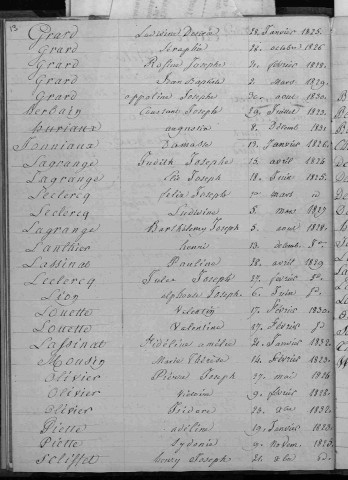 13
Girard Ludivine Desirée 28. Janvier 1825.
Girard Seraphin 24. octobre 1826
Girard Rosine Josephe 21. février 1828.
Girard Jean Baptiste 2. Mars 1829.
Girard appoline Josephe 30. aout 1830.
Herbain Constant Joseph 29. Juillet 1823.
huriaux augustin 8. Décemb. 1831.
Jonniaux Damase 13. Janvier 1826.
Lagrange Judith Josephe 15. avril 1823
Lagrange élie Joseph 18. Juin 1825.
Leclercq felix Joseph mars
Leclercq Ludivine 5. mai 1827
Lagrange Barthélemy Joseph 5. aout 1828.
Lanthier henri 13. décemb.
Lassinat Pauline 28. avril 1829
Leclercq Jules Joseph 27. février
Lion alphonse Joseph 6. Juin
Louette Valentin 17. Février 1830.
Louette Valentine 17. Février
Lassinat Fidéline amélie 21. Janvier 1832.
Mousin Marie Thérèse 14. Février 1823.
Olivier Pierre Joseph 27. mai 1826
Olivier Victoire 9. février 1828.
Olivier Isidore 23. xbre 1832.
Piette adeline 19. Janvier 1823.
Piette Sydonie 9. Novem. 1825.
Scliffet henry Joseph 21. xbre